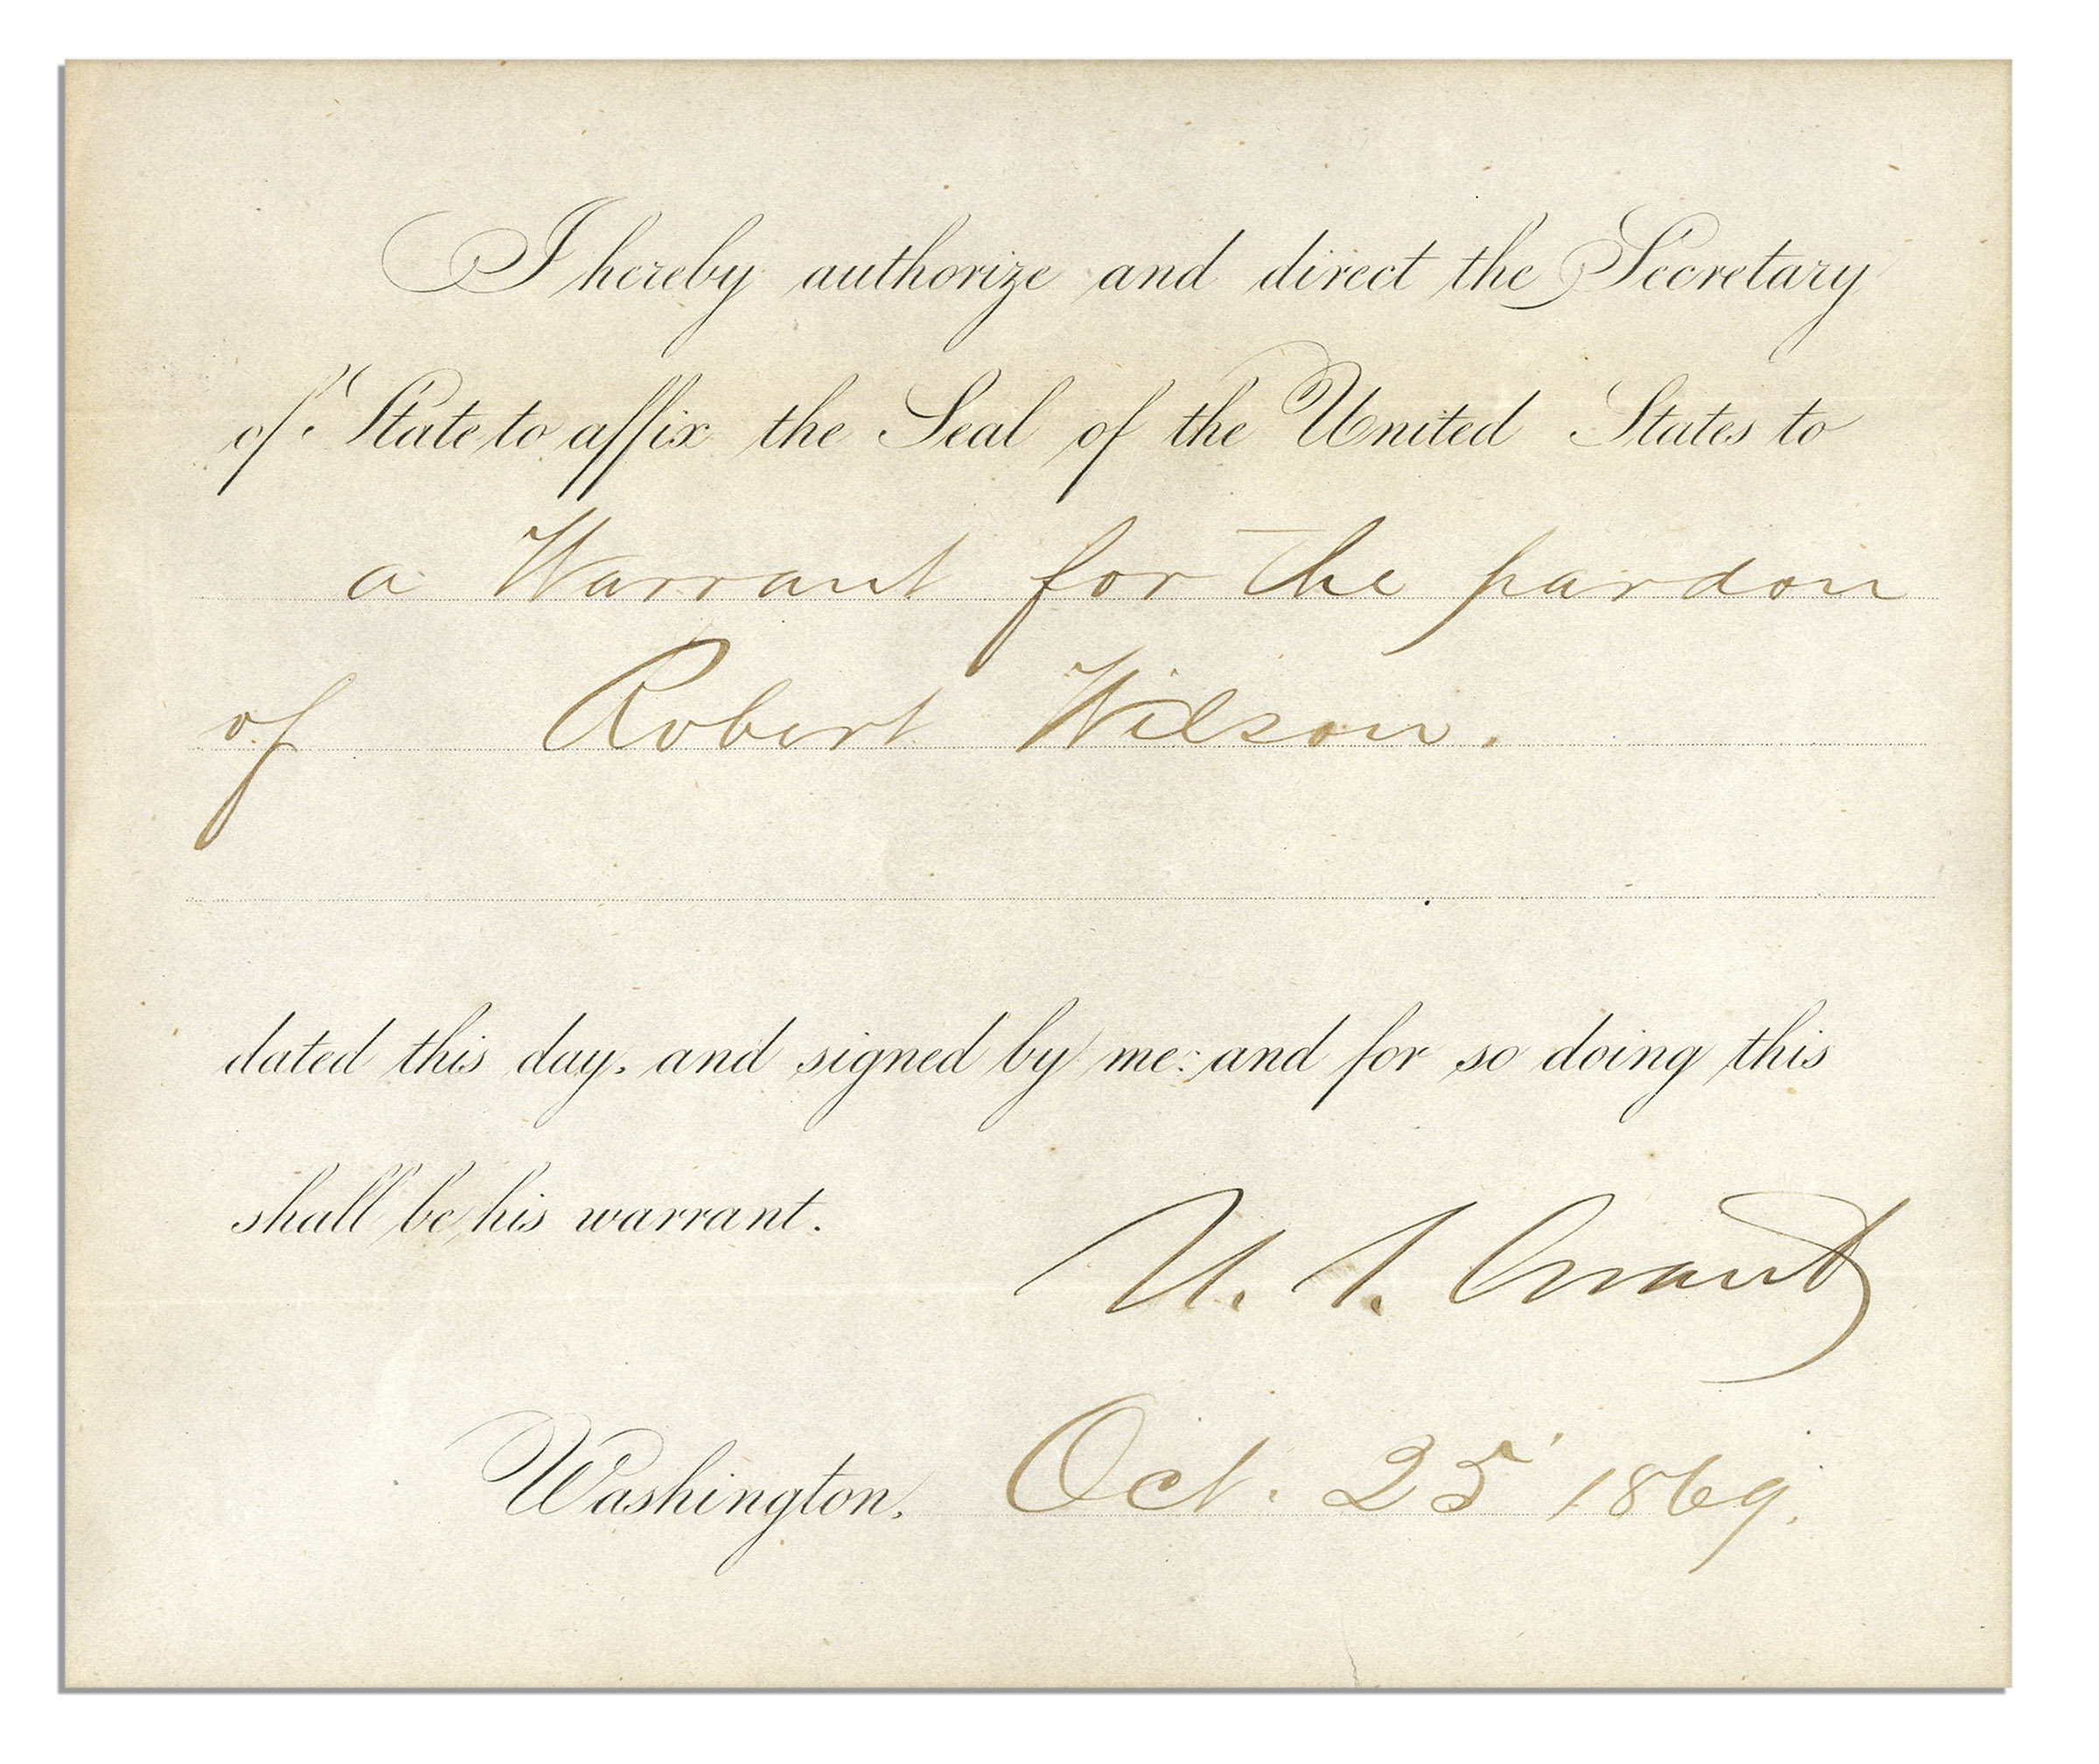 I hereby authorize and direct the Secretary
of State to affix the Seal of the United States to
a Warrant for the pardon
of Robert Wilson.
dated this day, and signed by me: and for so doing this
shall be his warrant.
U. S. Grant
Washington, Oct. 25' 1869.